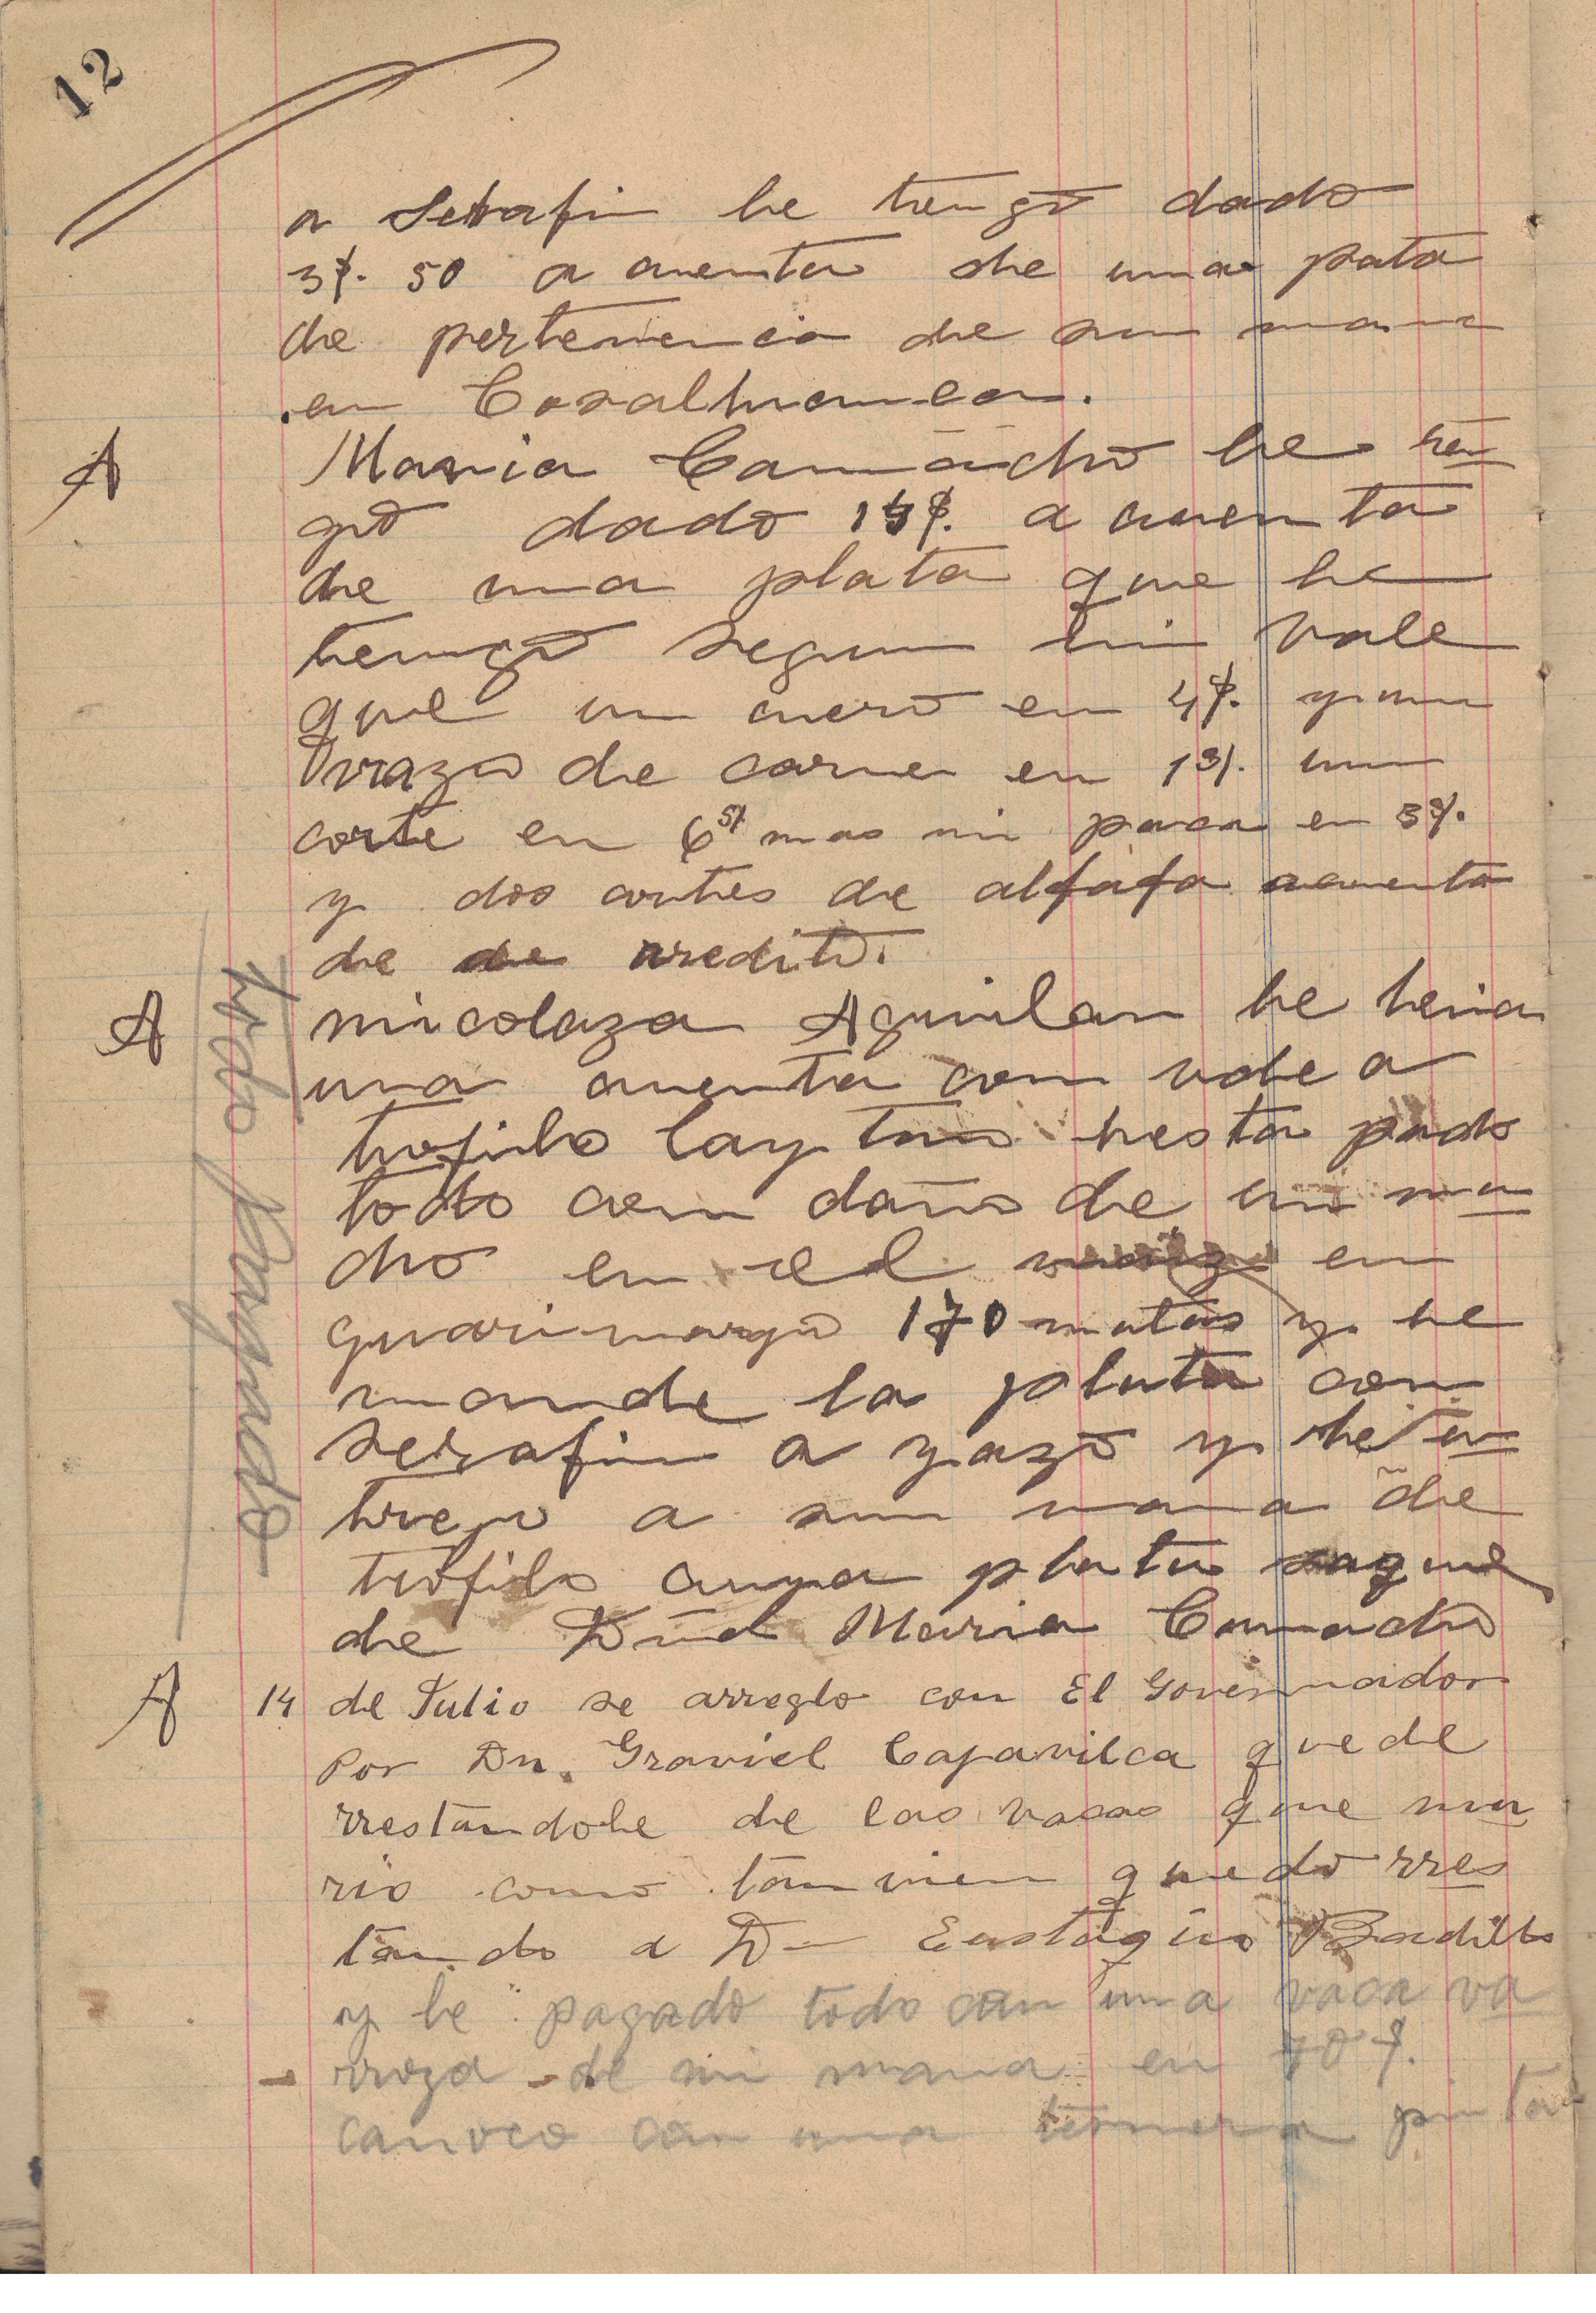 12
a Serafin le tengo dado
3$. 50 a cuenta de una pata
de pertenencia de su mama
en Cosalhuanca.
A Maria Camacho le ten
go dado 14$. a cuenta
de una plata que le
tengo segun mi vale
que un cuero en 4$. y un
vrazo de carne en 1$. un
corte en 6$ mas mi paca en 3$.
y dos cortes de alfafa acuenta
de de credito.
A nicolaza Aguilar le tenia
una cuenta con vale a
tiofilo Laytan hesta pado
todo con daño de mi ma
cho en el maiz en
guarimayo 170 matas y le
mande la plata con
Serafin a yazo y le en
trego a su mama de
tiofilo cuya plata saque
de Dñd Maria Camacho
todo pagado
A 14 de Julio se arreglo con El Governador
Por Dn. Graviel Capavilca quede
rrestandole de las vacas que mu
rio como tanvien quedo rres
tando a Dn Eustaqio Badillo
y le pagado todo con una vaca va
rroza de mi mama en 70$.
canoco con una ternera pinta